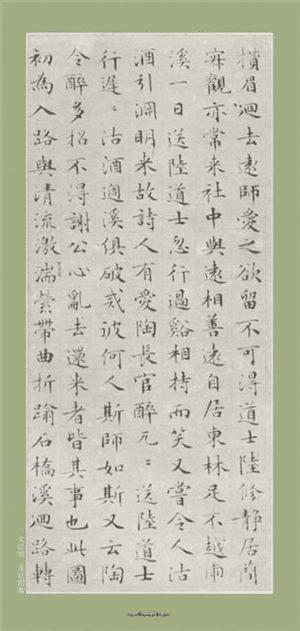 攢眉迴去遠師愛之欲留不可得道士陸修静居簡
寂觀亦常来社中與遠相善遠自居東林足不越
溪一日送陸道士忽行過谿相持而笑又嘗令人沽
酒引淵明来故詩人有愛陶長官醉兀〻送陸道士
行遲〻沽酒過溪俱破戒彼何人斯師如斯又云陶
令醉多招不得謝公心亂去還来者皆其事也此圖
初為入路與清流激湍縈帶曲折踰石橋溪迴路轉